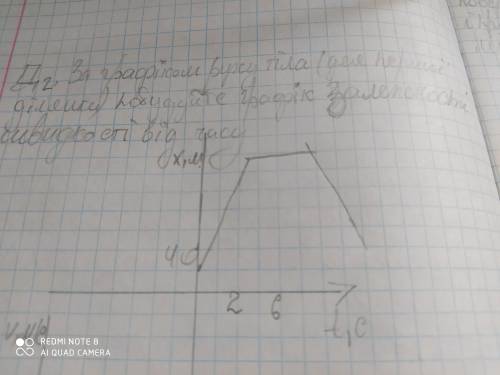 Д₂. За графіком руху тіла (для першої
ділянки) побудуйте графік залежності
швидкості від часу
х,м
4
2 6
t,c
REDMI NOTE 8
AI QUAD CAMERA